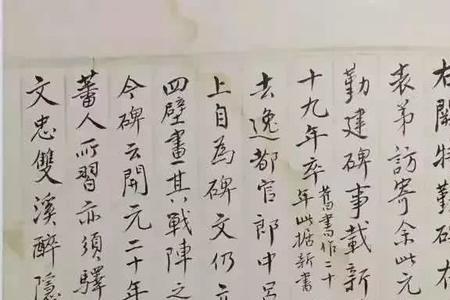 右闕特勤碑在
表弟訪寄余此元
勤建碑事載新
十九年卒舊書作二十
年此据新書
去逸都官郎中呂
上自為碑文仍立
四壁畫其戰陣之
今碑云開元二十年
蕃人所習亦須驛
文忠雙溪醉隱